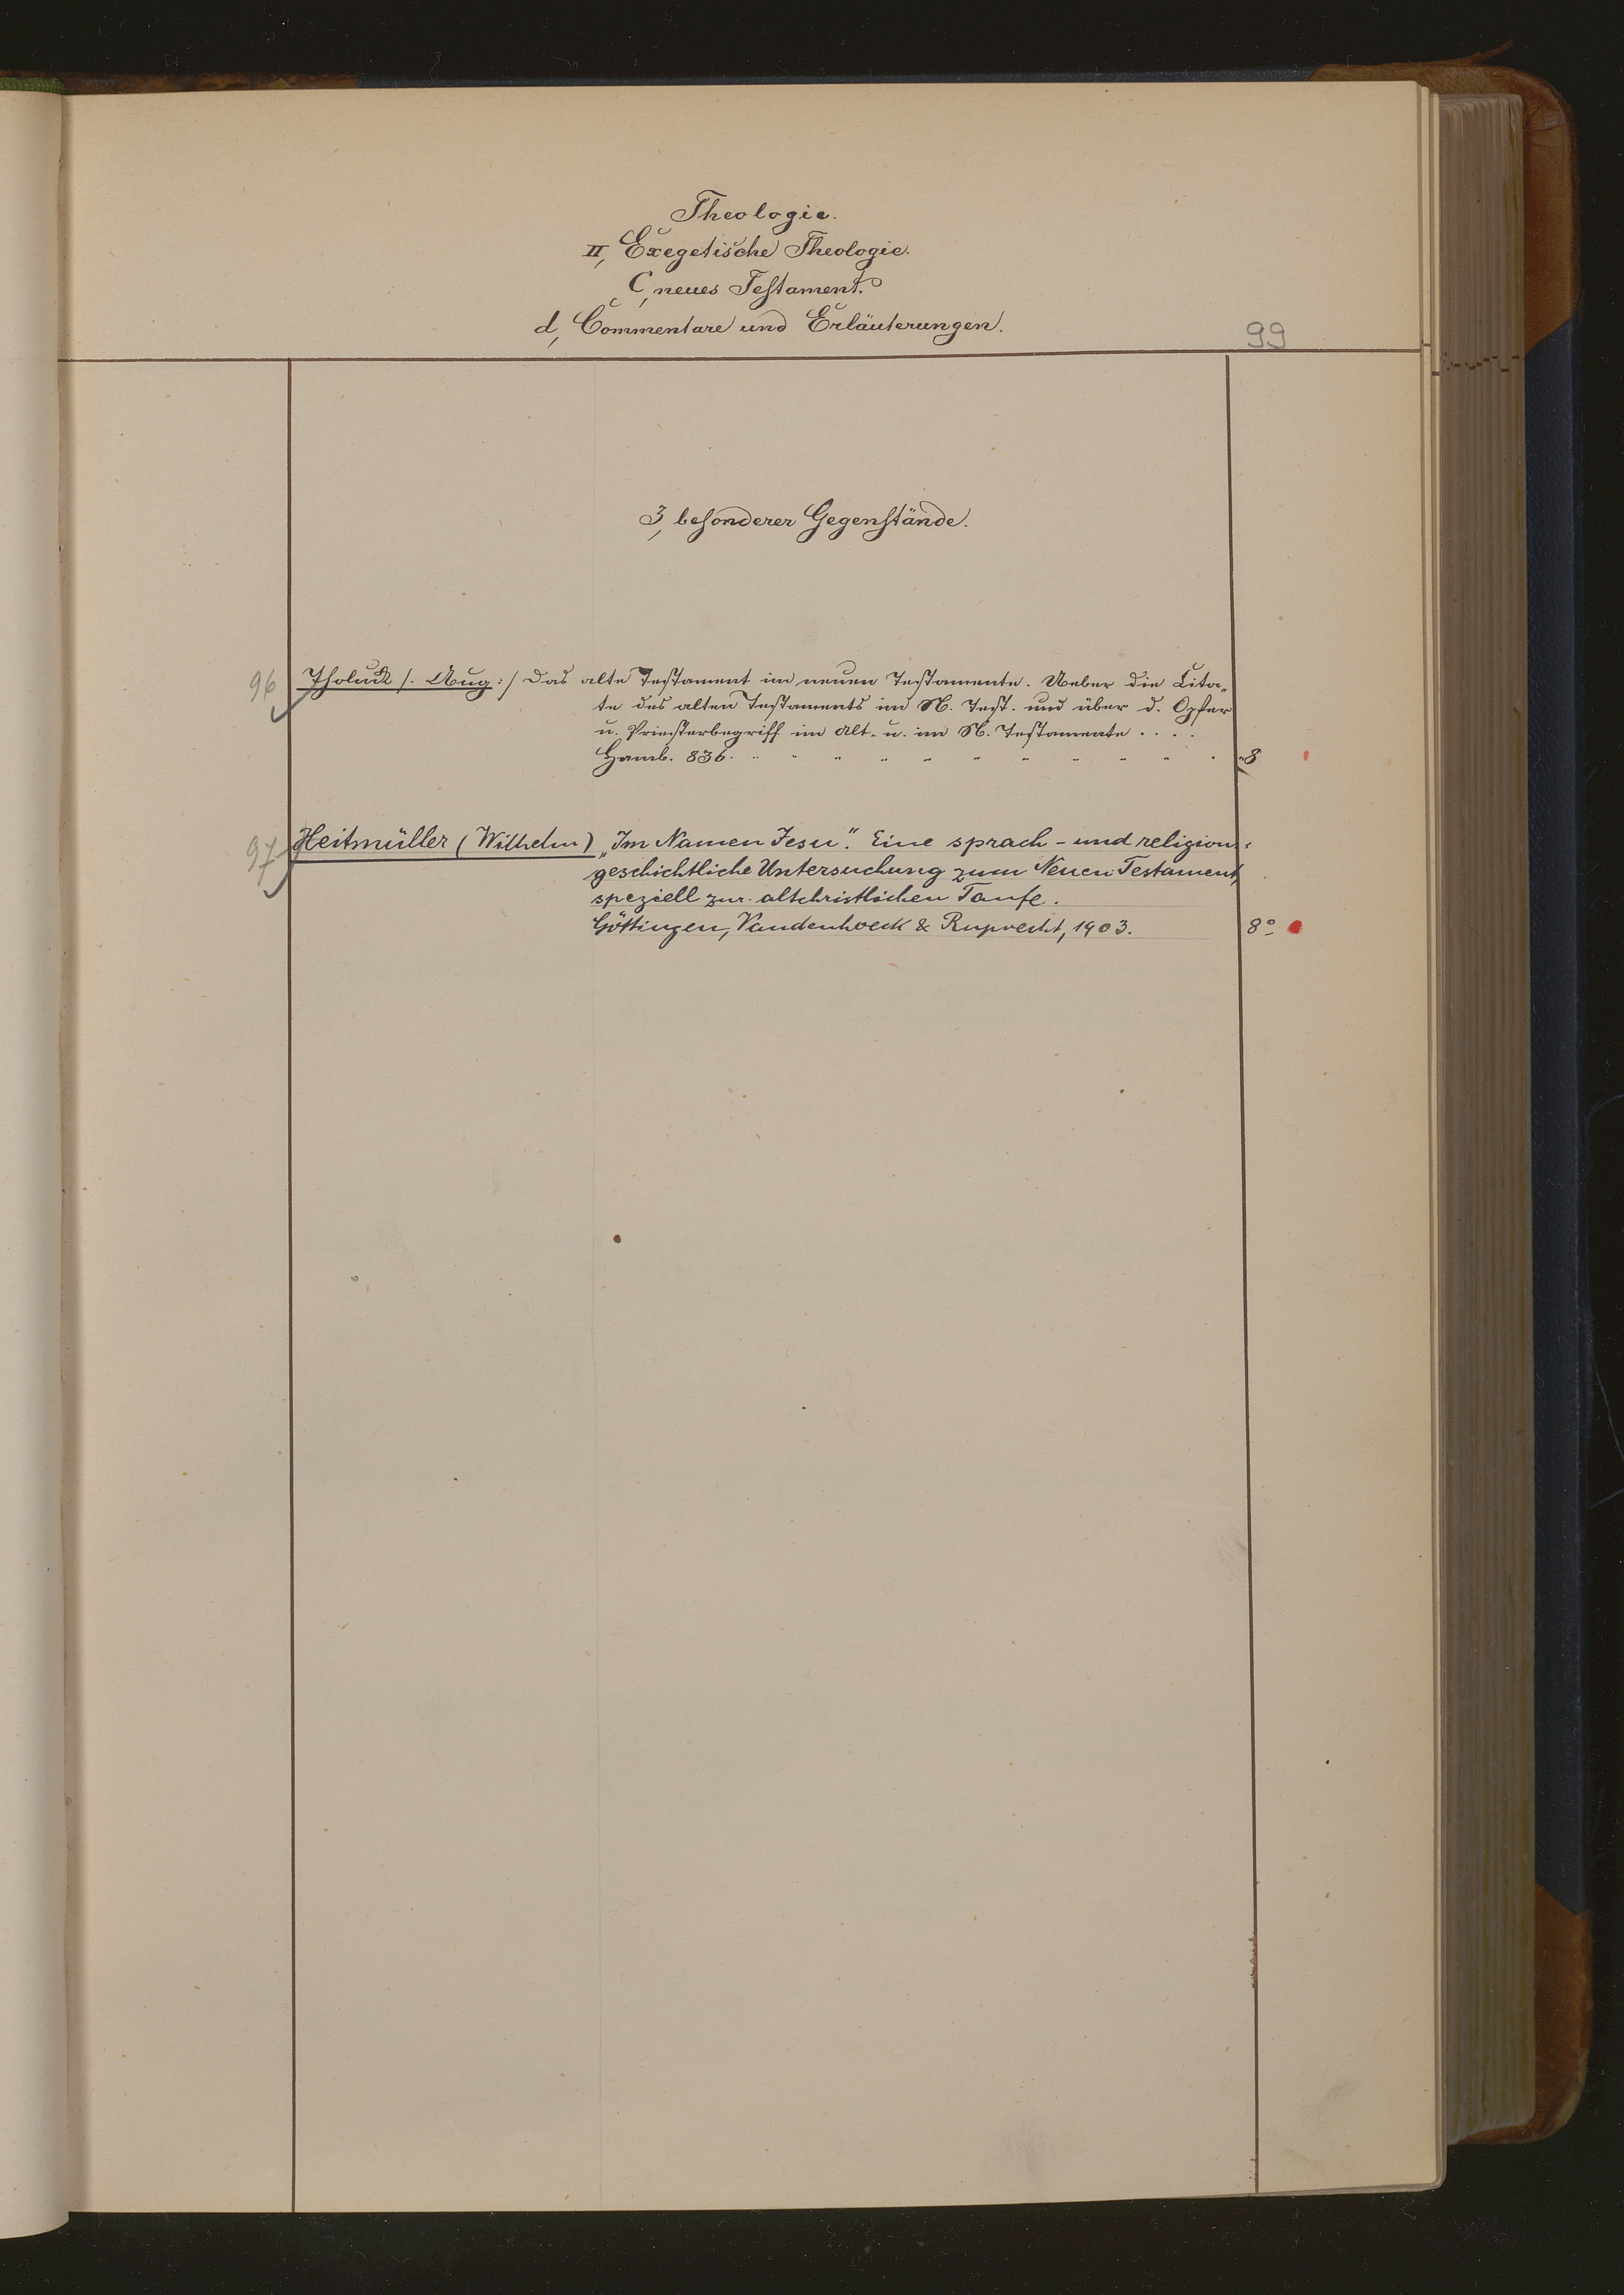 Theologie.
II, Exegetische Theologie.
C, neues Testament.
d, Commentare und Erläuterungen.
99
3, besonderer Gegenstände.
96 Tholuck /. Aug :/ Das alte Testament im neuen Testamente. Ueber die Cita„
te des alten Testaments im N. Test. und über d. Opfer
u. Priesterbegriff im Alt. u. im N. Testamente . . . .
Hamb. 836. 8
97 Heitmüller (Wilhelm) „Im Namen Jesu“. Eine sprach- und religions-
geschichtliche Untersuchung zum Neuen Testament,
speziell zur altchristlichen Taufe.
Göttingen, Vandenhoeck & Ruprecht, 1903. 8°